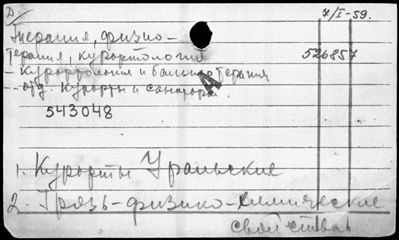 7/I-59.
Терапия, физио-
терапия, курортология 526857
- Курортология и бальнеотерапия
- отд. Курорты и санатории.
543048
1. Курорты Уральские
2. Грязь-физико-химические
свойства